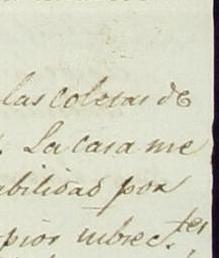 las coloras de
. La casa me
abilidad por
pios subrec.tes